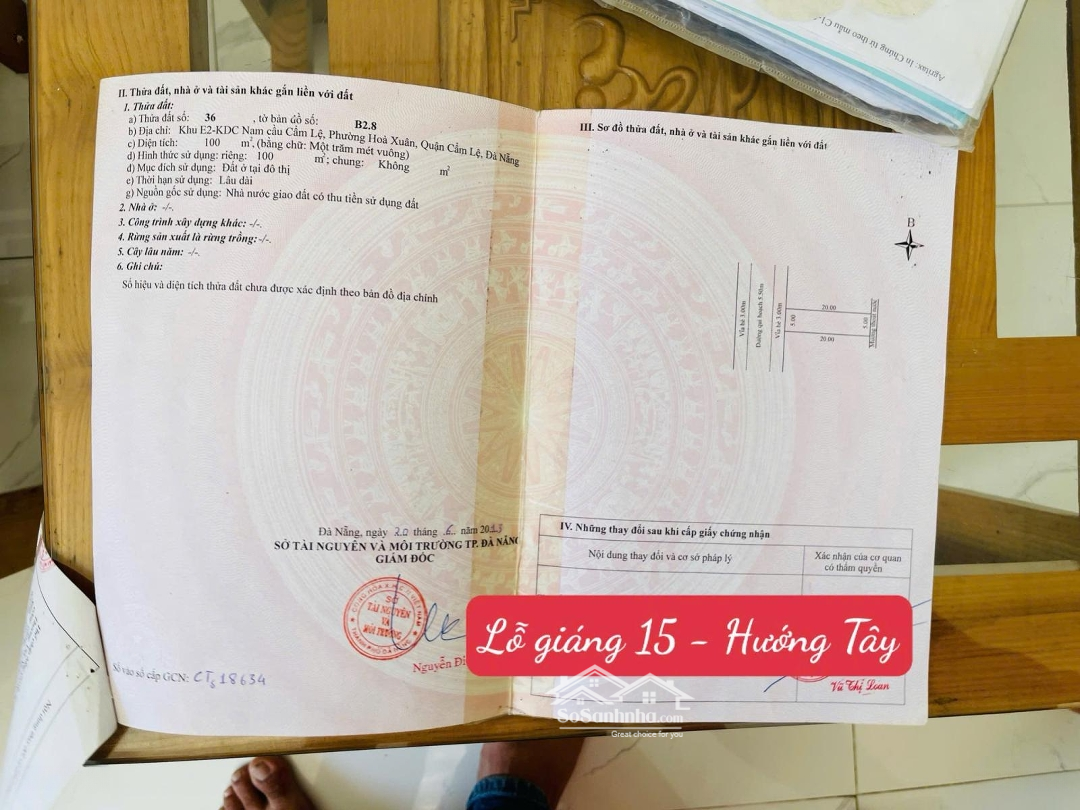 II. Thửa đất, nhà ở và tài sản khác gắn liền với đất
1. Thửa đất:
a) Thửa đất số: 36 , tờ bản đồ số: B2.8
b) Địa chỉ: Khu E2-KDC Nam cầu Cẩm Lệ, Phường Hoà Xuân, Quận Cẩm Lệ, Đà Nẵng
c) Diện tích: 100 m², (bằng chữ: Một trăm mét vuông)
d) Hình thức sử dụng: riêng: 100 m²; chung: Không m²
đ) Mục đích sử dụng: Đất ở tại đô thị
e) Thời hạn sử dụng: Lâu dài
g) Nguồn gốc sử dụng: Nhà nước giao đất có thu tiền sử dụng đất
2. Nhà ở: -/-.
3. Công trình xây dựng khác: -/-.
4. Rừng sản xuất là rừng trồng: -/-.
5. Cây lâu năm: -/-.
6. Ghi chú:
Số hiệu và diện tích thửa đất chưa được xác định theo bản đồ địa chính
Đà Nẵng, ngày 20 tháng 6 năm 2013
SỞ TÀI NGUYÊN VÀ MÔI TRƯỜNG TP. ĐÀ NẴNG
GIÁM ĐỐC
SỞ
TÀI NGUYÊN
VÀ
MÔI TRƯỜNG
Nguyễn Đi
Số vào sổ cấp GCN: CTs 18634
III. Sơ đồ thửa đất, nhà ở và tài sản khác gắn liền với đất
B
Vỉa hè 3.00m
Đường qui hoạch 5.50m
Vỉa hè 3.00m
20.00
5.00
5.00
20.00
Mương thoát nước
IV. Những thay đổi sau khi cấp giấy chứng nhận
Nội dung thay đổi và cơ sở pháp lý
Xác nhận của cơ quan
có thẩm quyền
Lỗ giáng 15 - Hướng Tây
Vũ Thị Loan
SoSanhnha.com
Great choice for you
Agritax: In Chứng từ theo mẫu C1-